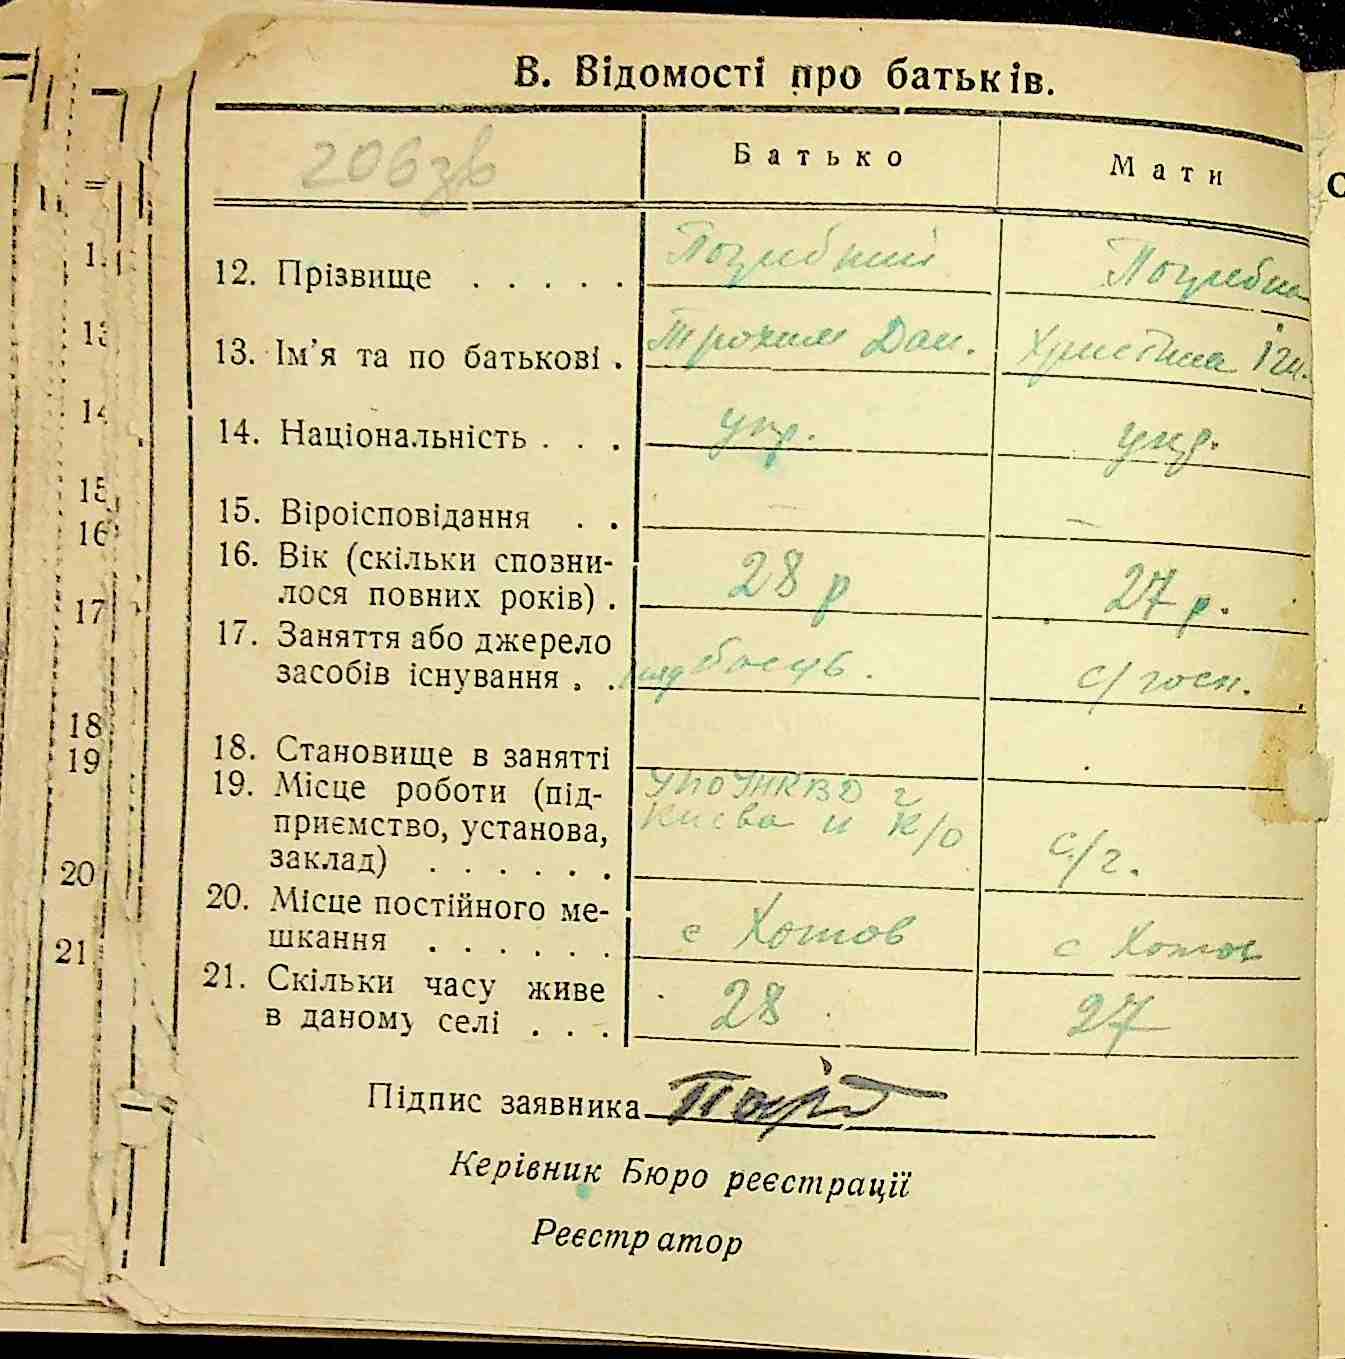 В. Відомості про батьків.
206зв
Батько Мати
12. Прізвище . . . . . Погрібний Погребна
13. Ім'я та по батькові . Трохим Дан. Христина Ігн.
14. Національність . . . укр. укр.
15. Віроісповідання . . – –
16. Вік (скільки сповни-
лося повних років) . 28 р 27 р.
17. Заняття або джерело
засобів існування . . с/госп.
18. Становище в занятті
19. Місце роботи (під-
приємство, установа,
заклад) . . . . . . УПО УНКВД г
Києва и К/О с/г.
20. Місце постійного ме-
шкання . . . . . . с Хотов с Хотов
21. Скільки часу живе
в даному селі . . . 28 27
Підпис заявника
Керівник Бюро реєстрації
Реєстратор
1.
13
14
15
16
17
18
19
20
21